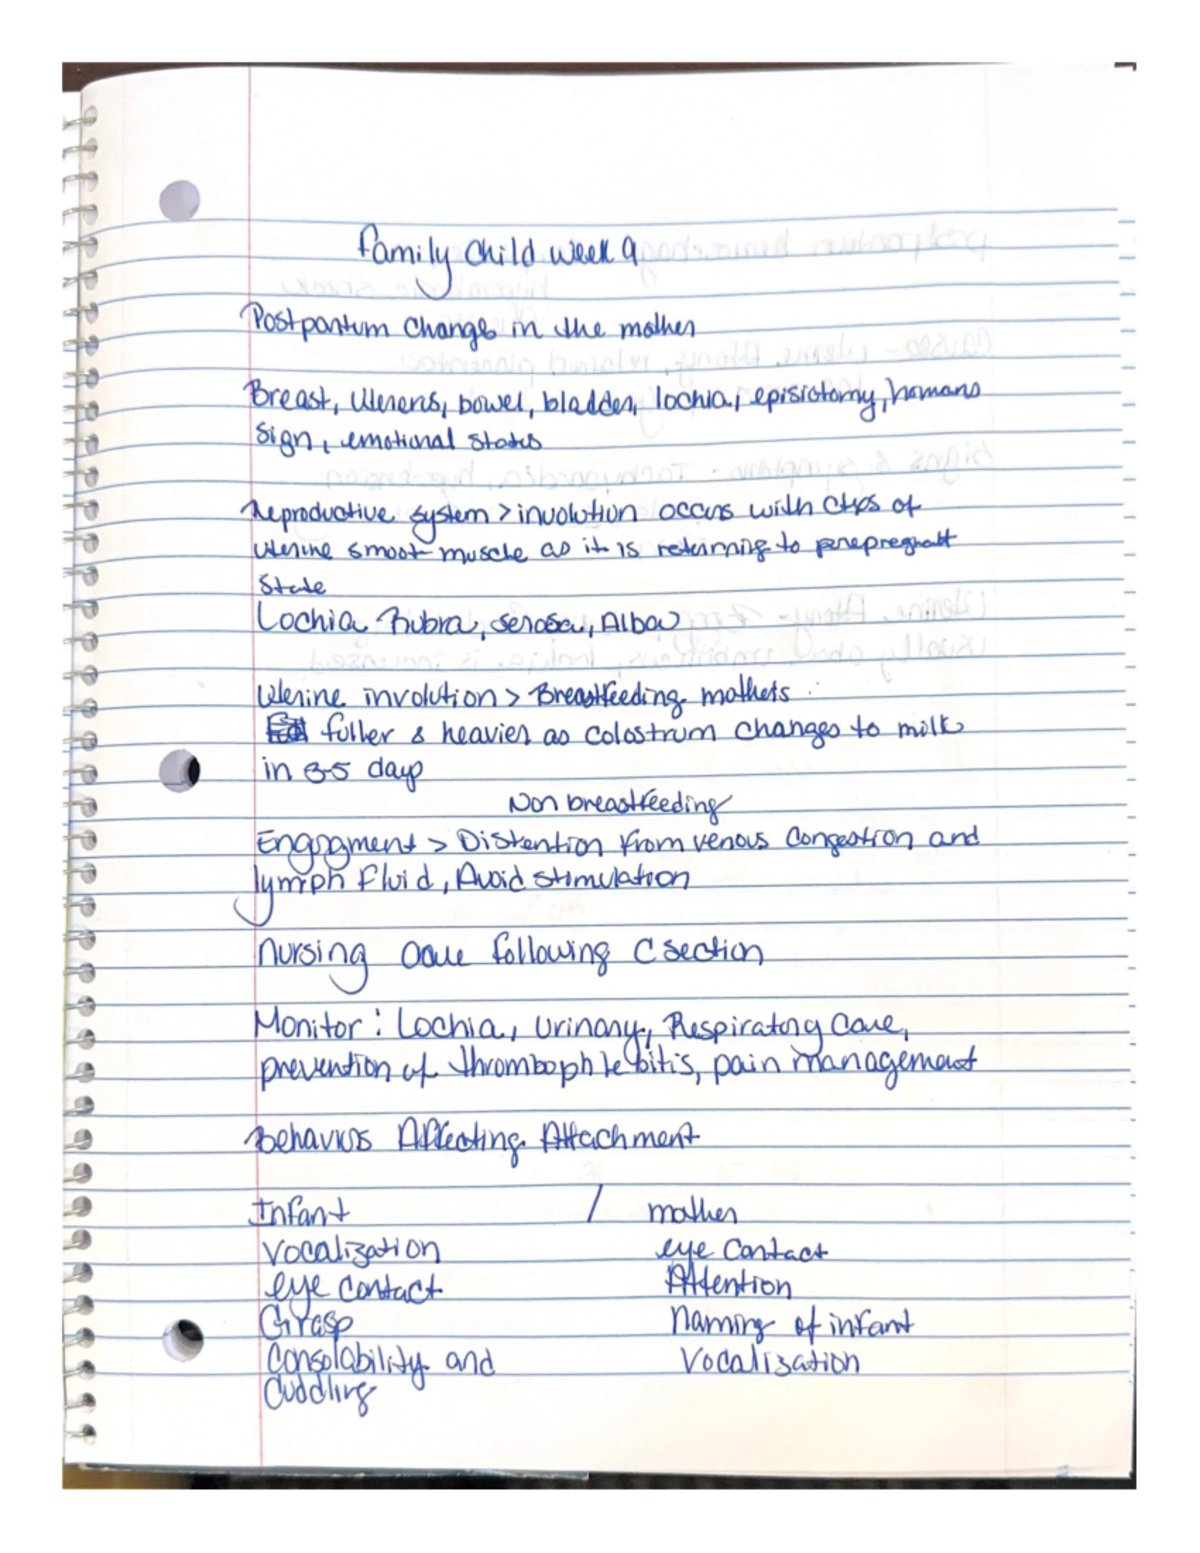 Family Child Week 9
Postpartum Change in the mother
Breast, Uterens, bowel, bladder, lochia, episiotomy, homans
sign, emotional states
Reproductive system > involution occurs with ctxs of
uterine smoot muscle as it is returning to prepregnatt
State
Lochia Rubra, serosa, Alba
Uterine involution > Breastfeeding mothers
fuller & heavier as colostrum changes to milk
in 3-5 days
Non breastfeeding
Engorgment > Distention from venous congestion and
lymph fluid, Avoid stimulation
Nursing care following C section
Monitor: Lochia, Urinary, Respiratory Care,
prevention of thrombophlebitis, pain management
Behaviors Affecting Attachment
Infant / mother
Vocalization eye contact
eye contact Attention
Grasp Naming of infant
Consolability and Vocalization
Cuddling